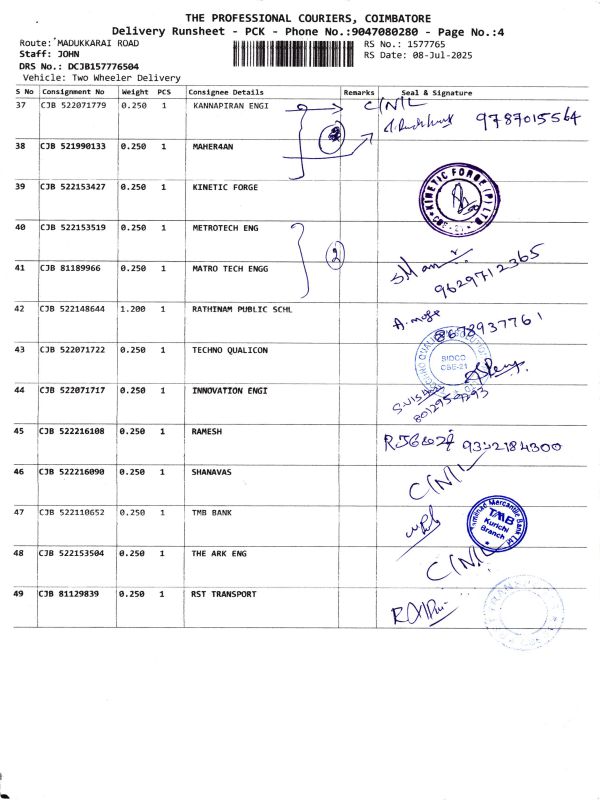 THE PROFESSIONAL COURIERS, COIMBATORE
Delivery Runsheet - PCK - Phone No.:9047080280 - Page No.:4
Route: MADUKKARAI ROAD
RS No.: 1577765
Staff: JOHN
RS Date: 08-Jul-2025
DRS No.: DCJB157776504
Vehicle: Two Wheeler Delivery
S No Consignment No Weight PCS Consignee Details Remarks Seal & Signature
37 CJB 522071779 0.250 1 KANNAPIRAN ENGI C/N/L
9787015564
38 CJB 521990133 0.250 1 MAHER4AN
39 CJB 522153427 0.250 1 KINETIC FORGE KINETIC FORGE (P) LTD CBE-21
40 CJB 522153519 0.250 1 METROTECH ENG
2
41 CJB 81189966 0.250 1 MATRO TECH ENGG
9629712365
42 CJB 522148644 1.200 1 RATHINAM PUBLIC SCHL
8678937761
43 CJB 522071722 0.250 1 TECHNO QUALICON SIDCO CBE-21
44 CJB 522071717 0.250 1 INNOVATION ENGI
45 CJB 522216108 0.250 1 RAMESH
46 CJB 522216090 0.250 1 SHANAVAS C/N/L
47 CJB 522110652 0.250 1 TMB BANK Tamilnad Mercantile Bank Ltd TMB Kurichi Branch
48 CJB 522153504 0.250 1 THE ARK ENG C/N/L
49 CJB 81129839 0.250 1 RST TRANSPORT